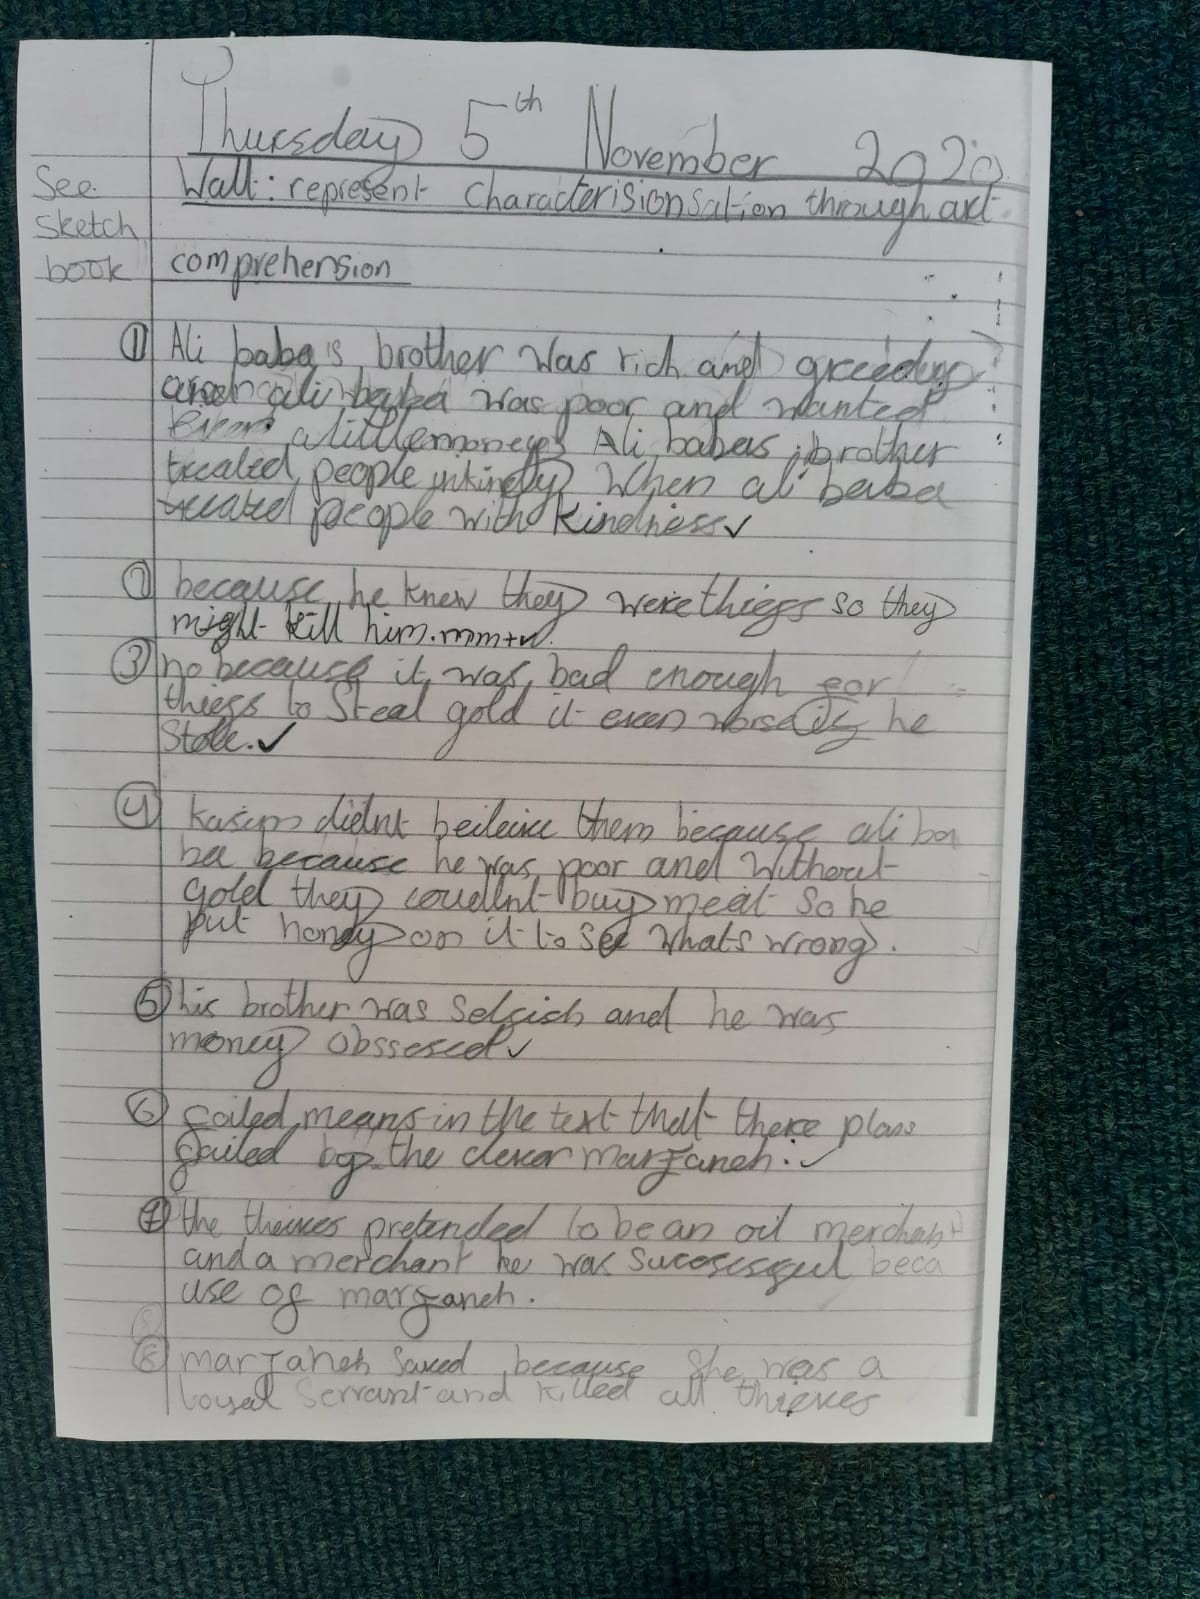 Thursday 5th November 2020
See Walt: represent characterisionsation through art
sketch
book comprehension
① Ali baba's brother was rich and greedy
and ali baba was poor and wanted
even a little money. Ali babas brother
treated people unkindly When ali baba
treated people with kindness ✓
② because he knew they were thiefs so they
might kill him.
③ no because it was bad enough for
thiefs to steal gold it even worse if he
stole. ✓
④ kasim didnt beileive them because ali ba
ba because he was poor and without
gold they coudlnt buy meat so he
put honey on it to see whats wrong.
⑤ his brother was selfish and he was
money obssesed ✓
⑥ foiled means in the text that there plans
failed by the clever marjaneh. ✓
⑦ the theives pretended to be an oil merchant
and a merchant he was sucosessful beca
use of marjaneh.
⑧ marjaneh saved because she was a
loyal servant and killed all thieves